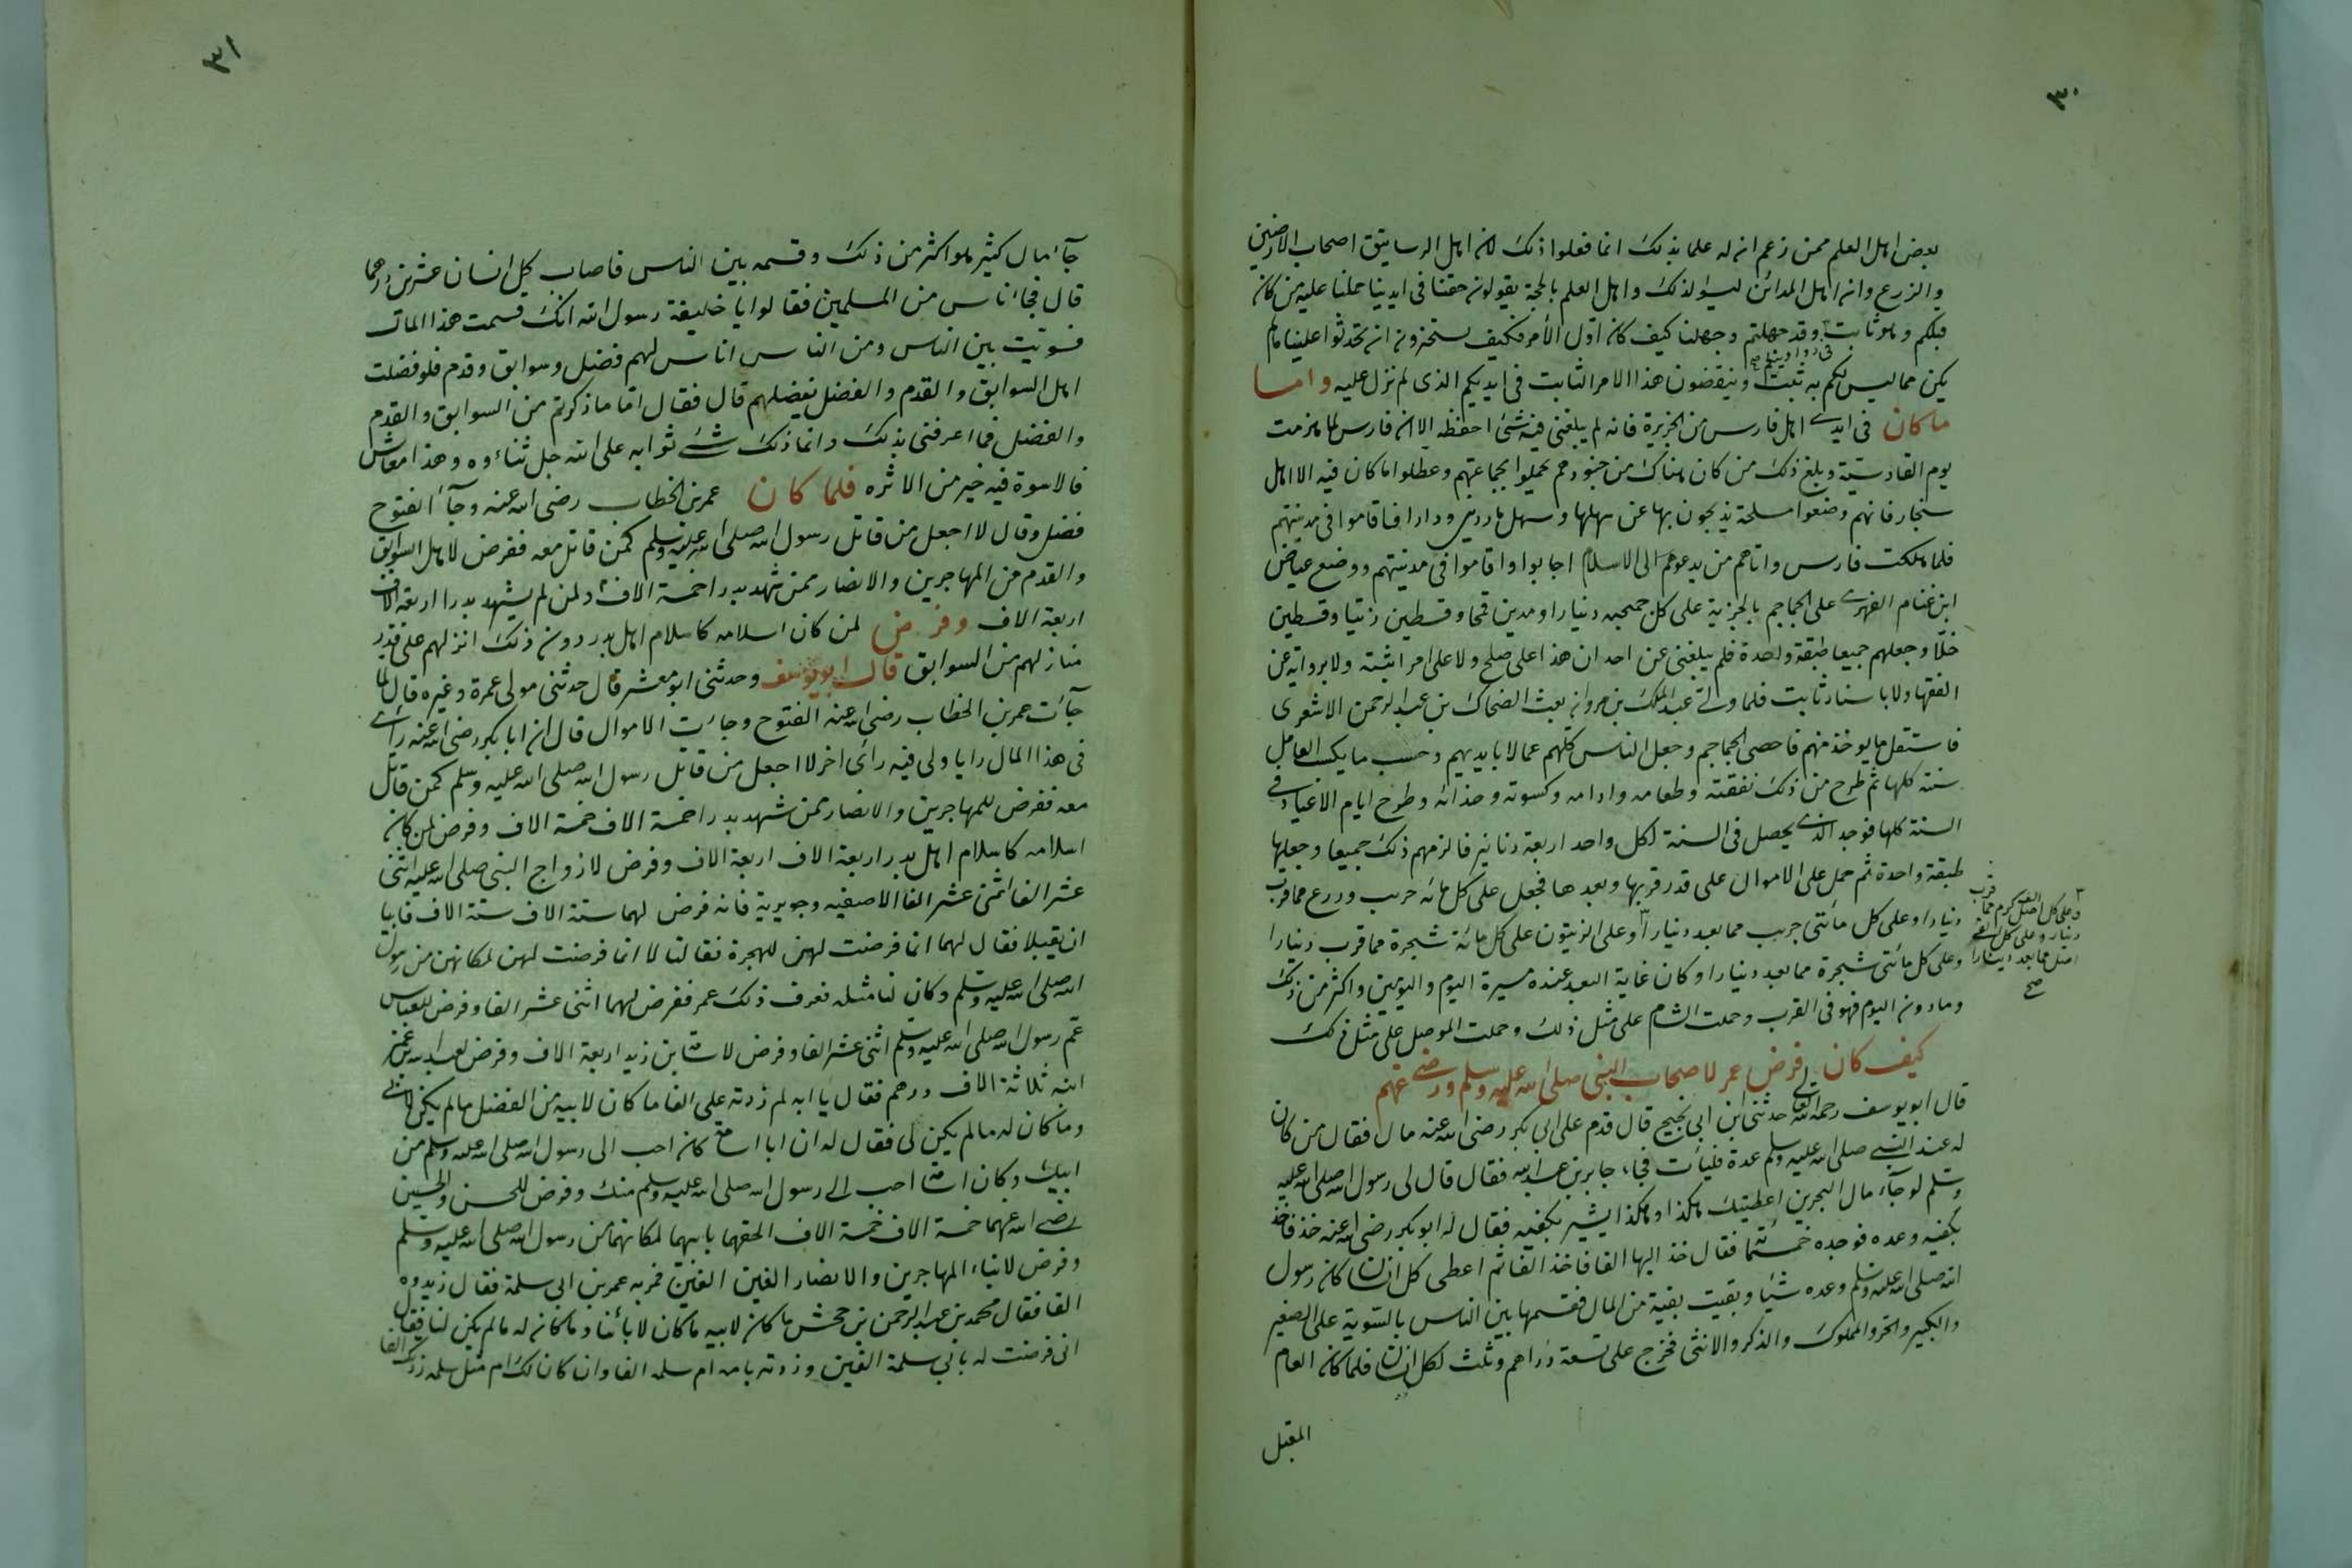 ٣٠
بعض اهل العلم ممن زعم ان له علما بذلك انما فعلوا ذلك لان اهل الرساتيق اصحاب الارضين
والزرع وان اهل المدائن ليسوا كذلك واهل العلم بالحجة يقولون حقنا فى ايدينا حملنا عليه من كان
قبلكم وهو ثابت فى دواوينكم صح وقد جهلتم وجهلنا كيف كان اول الأمر فكيف تستجيزون ان تحدثوا علينا مالم
يكن مما ليس لكم به ثبت وينقضون هذا الامر الثابت فى ايديكم الذى لم نزل عليه واما
ما كان فى ايدى اهل فارس من الجزيرة فانه لم يبلغنى فيه شئ احفظه الا ان فارس لما هزمت
يوم القادسية وبلغ ذلك من كان هناك من جنودهم تحملوا بجماعتهم وعطلوا ما كان فيه الا اهل
سنجار فانهم وضعوا مسلحة يذبحون بها عن سهلها وسهل ماردين ودارا فاقاموا فى مدينتهم
فلما هلكت فارس واتاهم من يدعوهم الى الاسلام اجابوا واقاموا فى مدينتهم ووضع عياض
ابن غنام الفهرى على الجماجم بالجزية على كل جمجمه دنيارا ومدين قمحا وقسطين زيتا وقسطين
خلّا وجعلهم جميعا طبقة واحدة فلم يبلغنى عن احد ان هذا على صلح ولا على امر اثبته ولا برواية عن
الفقها ولا باسناد ثابت فلما ولى عبد الملك بن مروان بعث الضحاك بن عبد الرحمن الاشعرى
فاستقل ما يوخذ منهم فاحصى الجماجم وجعل الناس كلهم عمالا بايديهم وحسب ما يكسب العامل
سنته كلها ثم طرح من ذلك نفقته وطعامه وادامه وكسوته وحذائه وطرح ايام الاعياد فى
السنة كلها فوجد الذى يحصل فى السنة لكل واحد اربعة دنانير فالزمهم ذلك جميعا وجعلها
طبقة واحدة ثم حمل على الاموال على قدر قربها وبعدها فجعل على كل مائه جريب وزرع مما قرب
دنيارا وعلى كل مائتى جريب مما بعد دنيارا ٣ وعلى الزيتون على كل مائة شجرة مما قرب دنيارا
وعلى كل مائتى شجرة مما بعد دنيارا وكان غاية البعد عنده مسيرة اليوم واليومين واكثر من ذلك
وما دون اليوم فهو فى القرب وحملت الشام على مثل ذلك وحملت الموصل على مثل ذلك
٣ وعلى كل الف اصل كرم مما قرب
دينار وعلى كل الفى
اصل مما بعد دينارا
صح
كيف كان فرض عمر لاصحاب النبى صلى الله عليه وسلم ورضى عنهم
قال ابو يوسف رحمه الله تعالى حدثنى ابن ابى نجيح قال قدم على ابى بكر رضى الله عنه مال فقال من كان
له عند النبى صلى الله عليه وسلم عدة فليأت فجاء جابر بن عبد الله فقال قال لى رسول الله صلى الله عليه
وسلم لو جآء مال البحرين اعطيتك هكذا وهكذا يشير بكفيه فقال له ابو بكر رضى الله عنه خذ فاخذ
بكفيه وعده فوجده خمسمئة فقال خذ اليها الفا فاخذ الفا ثم اعطى كل انسان كان رسول
الله صلى الله عليه وسلم وعده شيئا وبقيت بقية من المال فقسمها بين الناس بالتسوية على الصغير
والكبير والحر والمملوك والذكر والانثى فخرج على تسعة دراهم وثلث لكل انسان فلما كان العام
المقبل
٣١
جآء مال كثير هو اكثر من ذلك وقسمه بين الناس فاصاب كل انسان عشرين درهما
قال فجاء ناس من المسلمين فقالوا يا خليفة رسول الله انك قسمت هذا المال
فسويت بين الناس ومن الناس اناس لهم فضل وسوابق وقدم فلو فضلت
اهل السوابق والقدم والفضل بفضلهم قال فقال اما ما ذكرتم من السوابق والقدم
والفضل فما اعرفنى بذلك وانما ذلك شئ ثوابه على الله جل ثناءوه وهذا معاش
فالاسوة فيه خير من الاثره فلما كان عمر بن الخطاب رضى الله عنه وجآء الفتوح
فضل وقال لا اجعل من قاتل رسول الله صلى الله عليه وسلم كمن قاتل معه ففرض لاهل السوابق
والقدم من المهاجرين والانصار ممن شهد بدرا خمسة الاف ولمن لم يشهد بدرا اربعة الاف
اربعة الاف وفرض لمن كان اسلامه كاسلام اهل بدر دون ذلك انزلهم على قدر
منازلهم من السوابق قال ابو يوسف وحدثنى ابو معشر قال حدثنى مولى عمرة وغيره قال لما
جآءت عمر بن الخطاب رضى الله عنه الفتوح وجاءت الاموال قال ان ابا بكر رضى الله عنه راى
فى هذا المال رايا ولى فيه رائ اخر لا اجعل من قاتل رسول الله صلى الله عليه وسلم كمن قاتل
معه ففرض للمهاجرين والانصار ممن شهد بدرا خمسة الاف خمسة الاف وفرض لمن كان
اسلامه كاسلام اهل بدر اربعة الاف اربعة الاف وفرض لازواج النبى صلى الله عليه اثنى
عشر الفا اثنى عشر الفا الا صفيه وجويرية فانه فرض لهما ستة الاف ستة الاف فابيا
ان يقبلا فقال لهما انما فرضت لهن للهجرة فقالتا لا انما فرضت لهن لمكانهن من رسول
الله صلى الله عليه وسلم وكان لنا مثله فعرف ذلك عمر ففرض لهما اثنى عشر الفا وفرض للعباس
عم رسول الله صلى الله عليه وسلم اثنى عشر الفا وفرض لاسامة بن زيد اربعة الاف وفرض لعبد الله بن عمر
ابنه ثلاثة الاف درهم فقال يا ابه لم زدته على الفا ما كان لابيه من الفضل ما لم يكن لابى
وما كان له ما لم يكن لى فقال له ان ابا اسامة كان احب الى رسول الله صلى الله عليه وسلم من
ابيك وكان اسامة احب الى رسول الله صلى الله عليه وسلم منك وفرض للحسن والحسين
رضى الله عنهما خمسة الاف خمسة الاف الحقهما بابيهما لمكانهما من رسول الله صلى الله عليه وسلم
وفرض لابناء المهاجرين والانصار الفين الفين فمر به عمر بن ابى سلمة فقال زيدوه
الفا فقال محمد بن عبد الرحمن بن جحش ما كان لابيه ما كان لابائنا وما كان له ما لم يكن لنا فقال
انى فرضت له بابى سلمة الفين وزدته بامه ام سلمه الفا وان كان لك ام مثل سلمه زدتك الفا